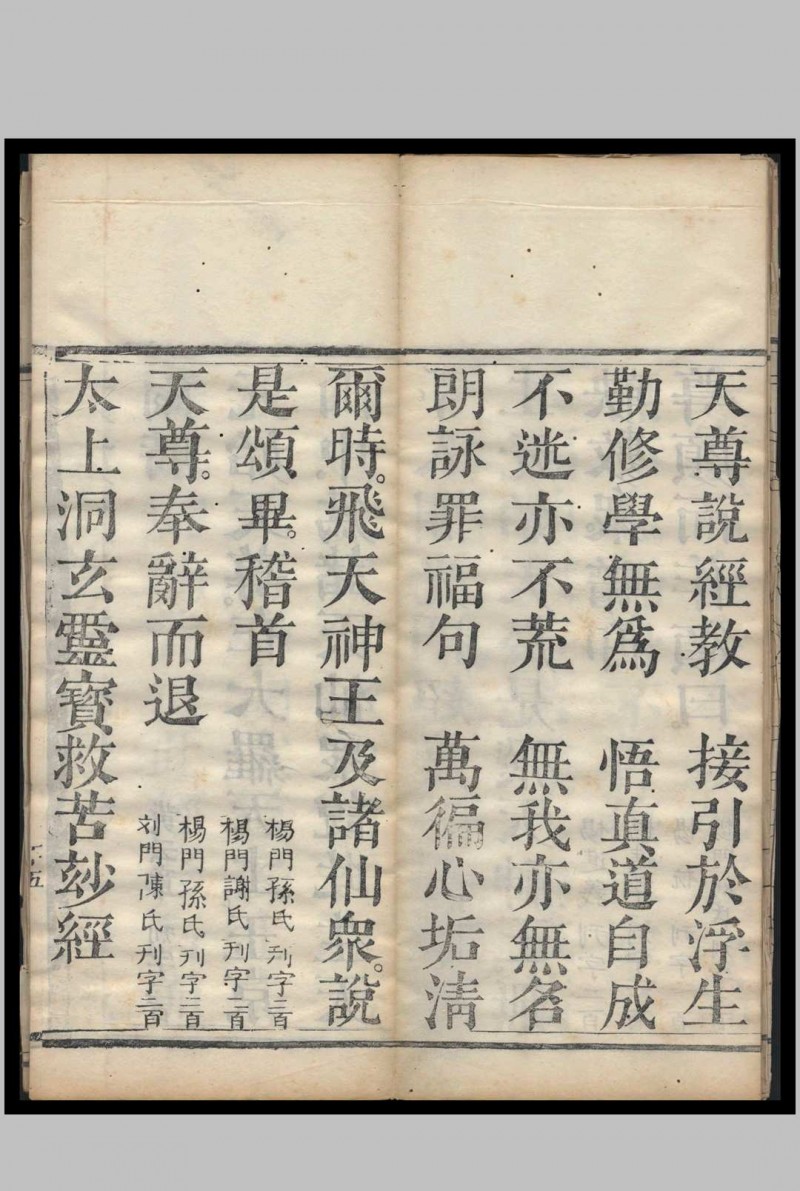 天尊說經教　接引於浮生
勤修學無爲　悟真道自成
不迷亦不荒　無我亦無名
朗詠罪福句　萬徧心垢清
爾時。飛天神王及諸仙眾。說
是頌畢。稽首
楊門孫氏刊字二百
楊門謝氏刊字二百
天尊。奉辭而退
楊門孫氏刊字二百
刘門陳氏刊字二百
太上洞玄靈寶救苦玅經
十五